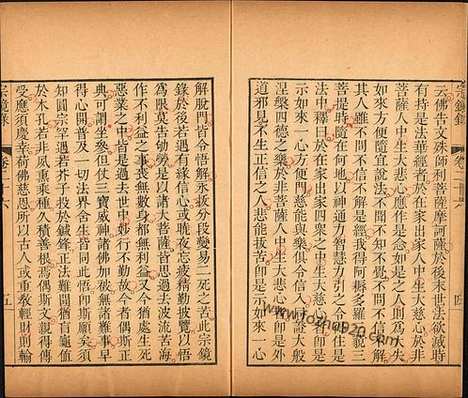 宗鏡錄 卷二十六 四
云佛告文殊師利菩薩摩訶薩於後末世法欲滅時
有持是法華經者於在家出家人中生大慈心於非
菩薩人中生大悲心應作是念如是之人則為大失
如來方便隨宜說法不聞不知不覺不問不信不解
其人雖不問不信不解是經我得阿耨多羅三藐三
菩提時隨在何地以神通力智慧力引之令得住是
法中釋曰於在家出家四眾之中生大慈心即是開
示如來一心方便門慈能與樂俱令信入同證大般
涅槃四德之樂於非菩薩人中生大悲心即是外
道邪見不生信之人悲能拔苦於是示如來一心
解脫門皆令悟解永拔分段變易二死之苦此宗鏡
錄於後若遇有緣信心或晓夜忘疲精勤披覽以悟
為限莫告劬勞是以諸大菩薩皆思過去波流苦海
作不利益之事喪無數身都無利益又今猶處生死
惡業之中皆是過去世中妙行不勤故今者偶斯正
典可謂坐參但仗三寶威神諸佛加被無諸難事早
得心開普及一切法界含生皆同此悟即斯願矣須
知圓宗罕遇若芥子投於鍼鋒正法難聞猶盲龜值
於木孔若非夙重乘種久積善根焉偶斯文親得傳
受應須慶幸荷佛慈恩所以古人或重教輕財則輸
宗鏡錄 卷二十六 五